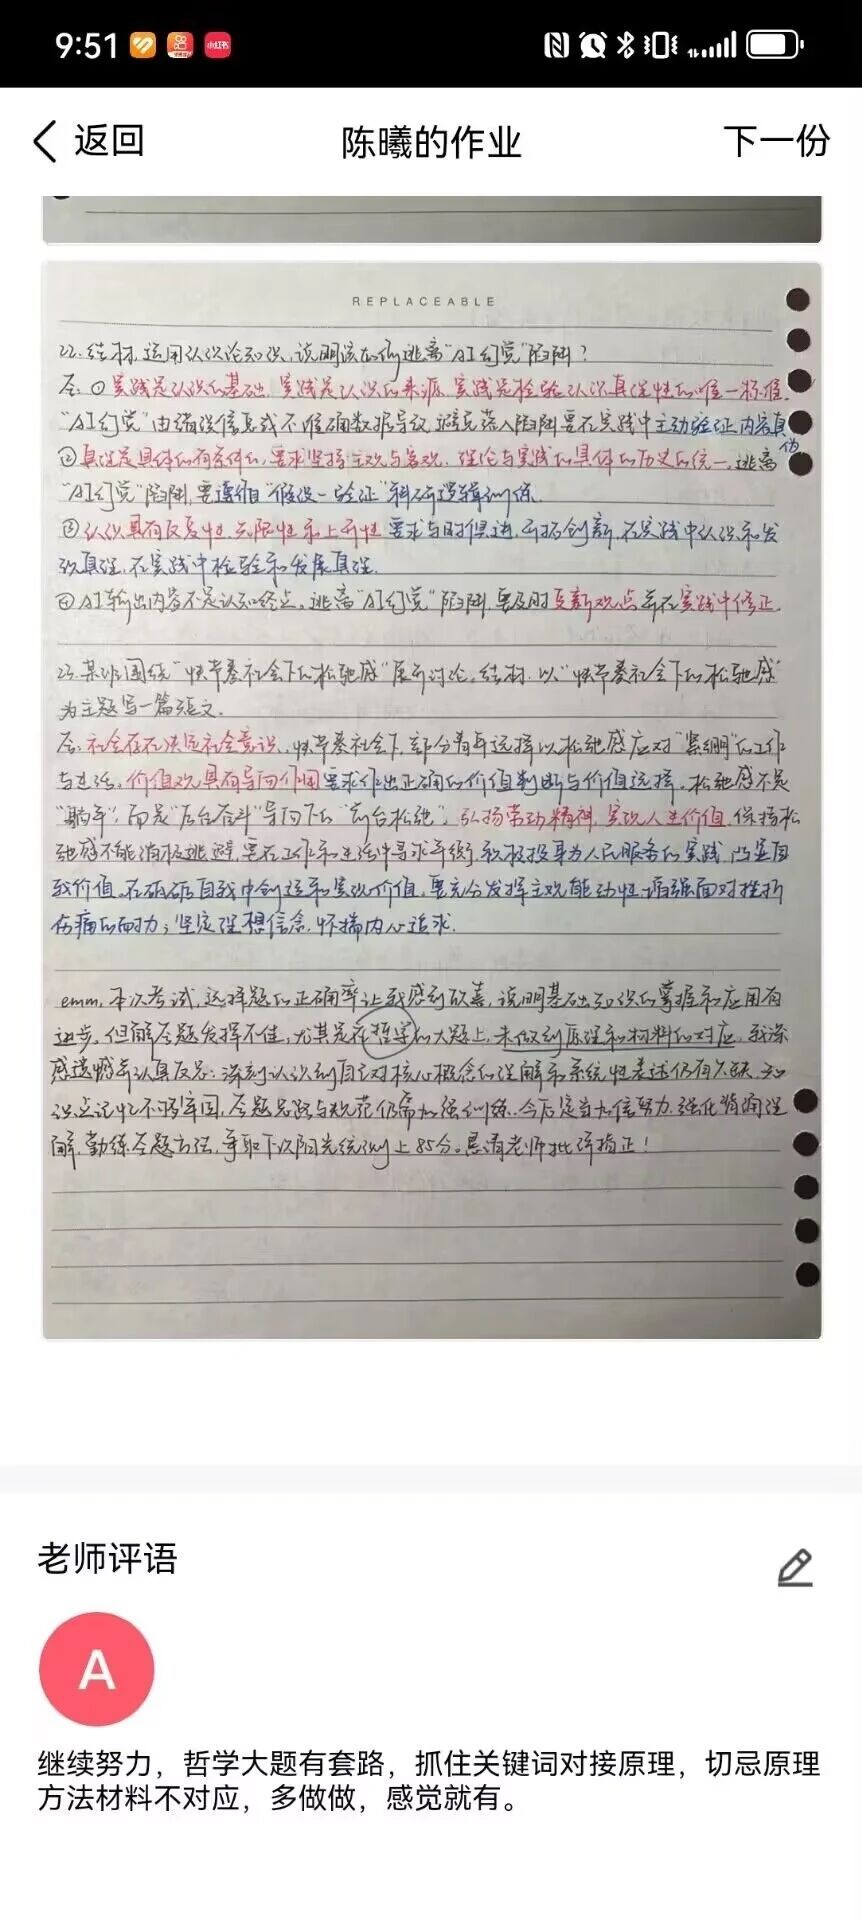 9:51
返回
陈曦的作业
下一份
REPLACEABLE
22.结材,运用认识论知识,说明该如何逃离"AI幻觉"陷阱?
答:①实践是认识的基础,实践是认识的来源,实践是检验认识真理性的唯一标准.
"AI幻觉"由错误信息或不准确数据导致,避免落入陷阱要在实践中主动验证内容真伪
②真理是具体的有条件的,要求坚持主观与客观、理论与实践的具体的历史的统一,逃离
"AI幻觉"陷阱,要遵循"假设—验证"科研逻辑训练.
③认识具有反复性、无限性和上升性,要求与时俱进,开拓创新,在实践中认识和发
现真理,在实践中检验和发展真理.
④AI输出内容不是认知终点。逃离"AI幻觉"陷阱,要及时更新观点并在实践中修正.
23.某班围绕"快节奏社会下的松弛感"展开讨论。结材,以"快节奏社会下的松弛感"
为主题写一篇短文.
答:社会存在决定社会意识,快节奏社会下,部分青年选择以松弛感应对"紧绷"的工作
与生活。价值观具有导向作用要求作出正确的价值判断与价值选择。松弛感不是
"躺平",而是"后台奋斗"导向下的"前台松弛"。弘扬劳动精神,实现人生价值,保持松
弛感不能消极逃避,要在工作和生活中寻求平衡,积极投身为人民服务的实践,凸显自
我价值。在砥砺自我中创造和实现价值,要充分发挥主观能动性,增强面对挫折
伤痛的耐力;坚定理想信念,怀揣内心追求.
emm,本次考试,选择题的正确率让我感到欣喜,说明基础知识的掌握和应用有
进步。但解答题发挥不佳,尤其是在哲学的大题上,未做到原理和材料的对应。我深
感遗憾并认真反思:深刻认识到自己对核心概念的理解和系统性表述仍有欠缺,知
识点记忆不够牢固,答题思路与规范仍需加强训练。今后定当加倍努力,强化背诵理
解,勤练答题方法,争取下次阳光统测上85分。恳请老师批评指正!
老师评语
A
继续努力，哲学大题有套路，抓住关键词对接原理，切忌原理
方法材料不对应，多做做，感觉就有。